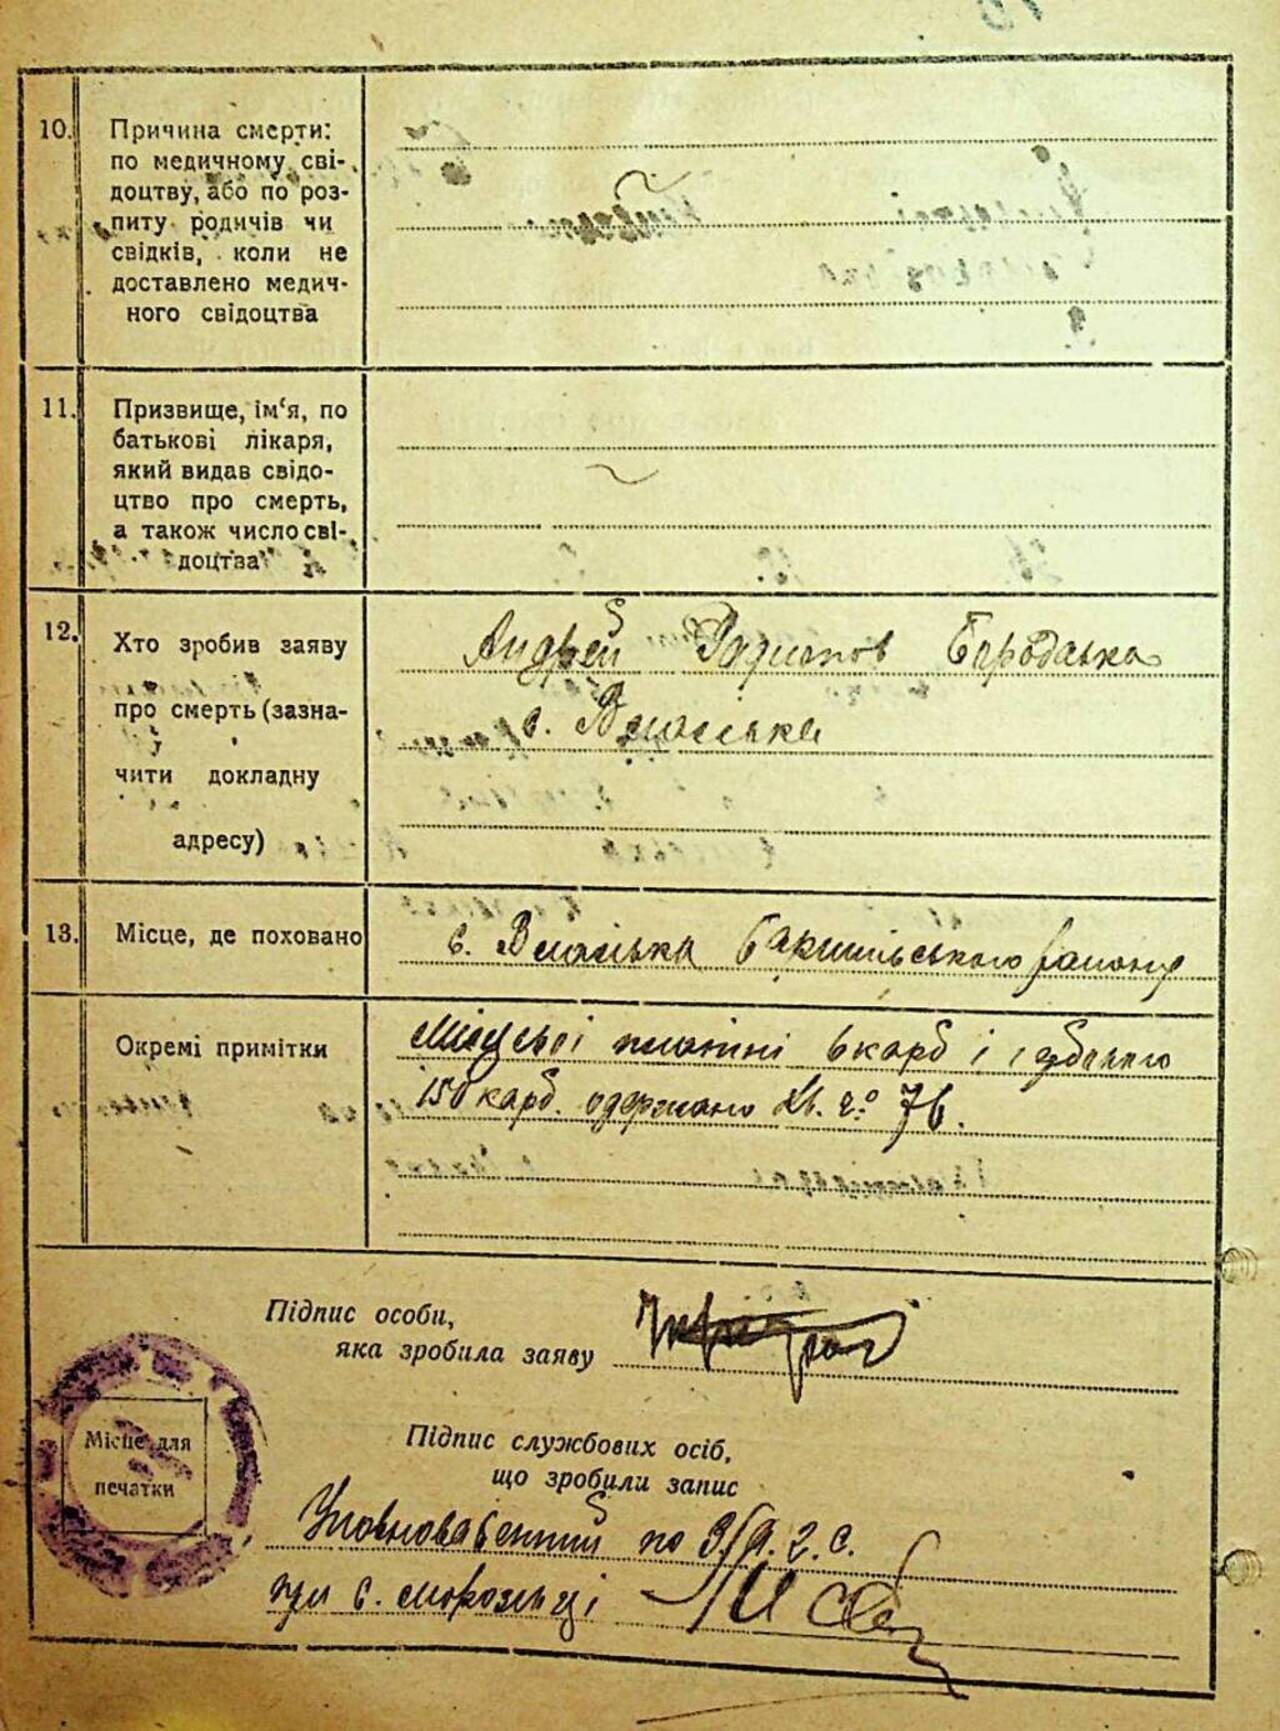 10. Причина смерти:
по медичному сві-
доцтву, або по роз-
питу родичів чи
свідків, коли не
доставлено медич-
ного свідоцтва
11. Призвище, ім‘я, по
батькові лікаря,
який видав свідо-
цтво про смерть,
а також число сві-
доцтва
12. Хто зробив заяву
про смерть (зазна-
чити докладну
адресу)
Андрей Бородавка
с.
13. Місце, де поховано
с. району
Окремі примітки
Місцьвої 6 карб і
150 карб. одержано Кв. № 76.
Підпис особи,
яка зробила заяву
Місце для
печатки
Підпис службових осіб,
що зробили запис
по З.А.Г.С.
при с. Морозівці